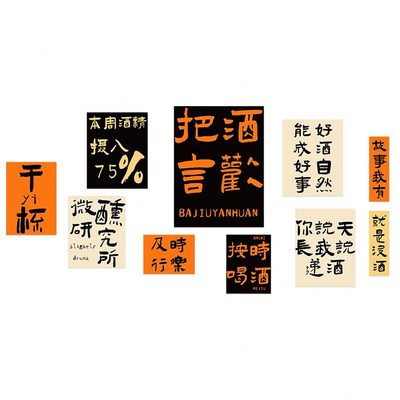 干
yi
杯
本周酒精
摄入
75%
微醺
研究
所
slightly
drunk
把酒
言歡
BAJIUYANHUAN
及時
行樂
ANSHI
按時
喝酒
HEJIU
好酒自然
能成好事
你説天
長我説
遞酒
故事我有
就是没酒